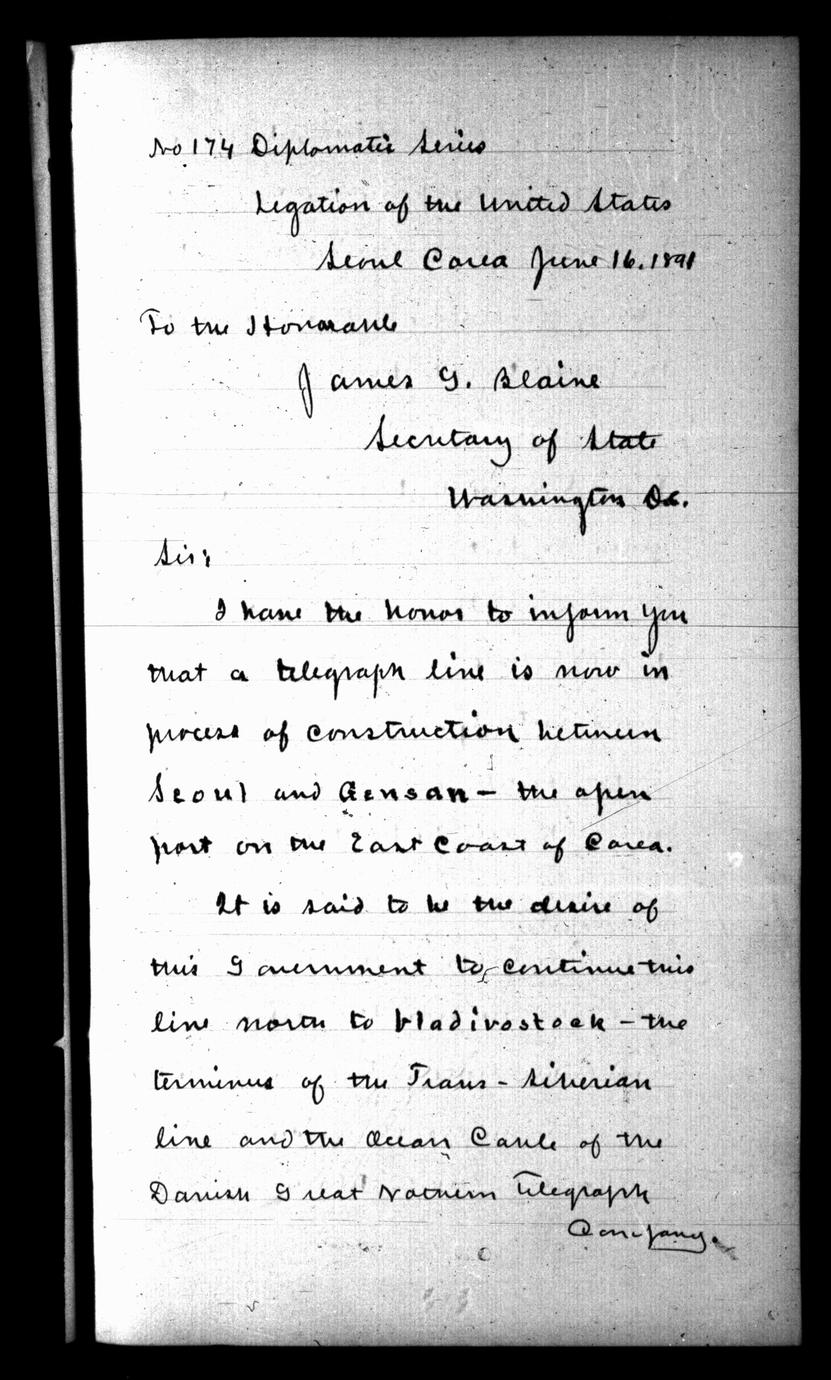 No 174 Diplomatic Series
Legation of the United States
Seoul Corea June 16. 1891
To the Honorable
James G. Blaine
Secretary of State
Washington D.C.
Sir:
I have the honor to inform you
that a telegraph line is now in
process of construction between
Seoul and Gensan - the open
port on the East Coast of Corea.
It is said to be the desire of
this Government to continue this
line north to Vladivostock - the
terminus of the Trans-Siberian
line and the Ocean Cable of the
Danish Great Nothern Telegraph
Company.